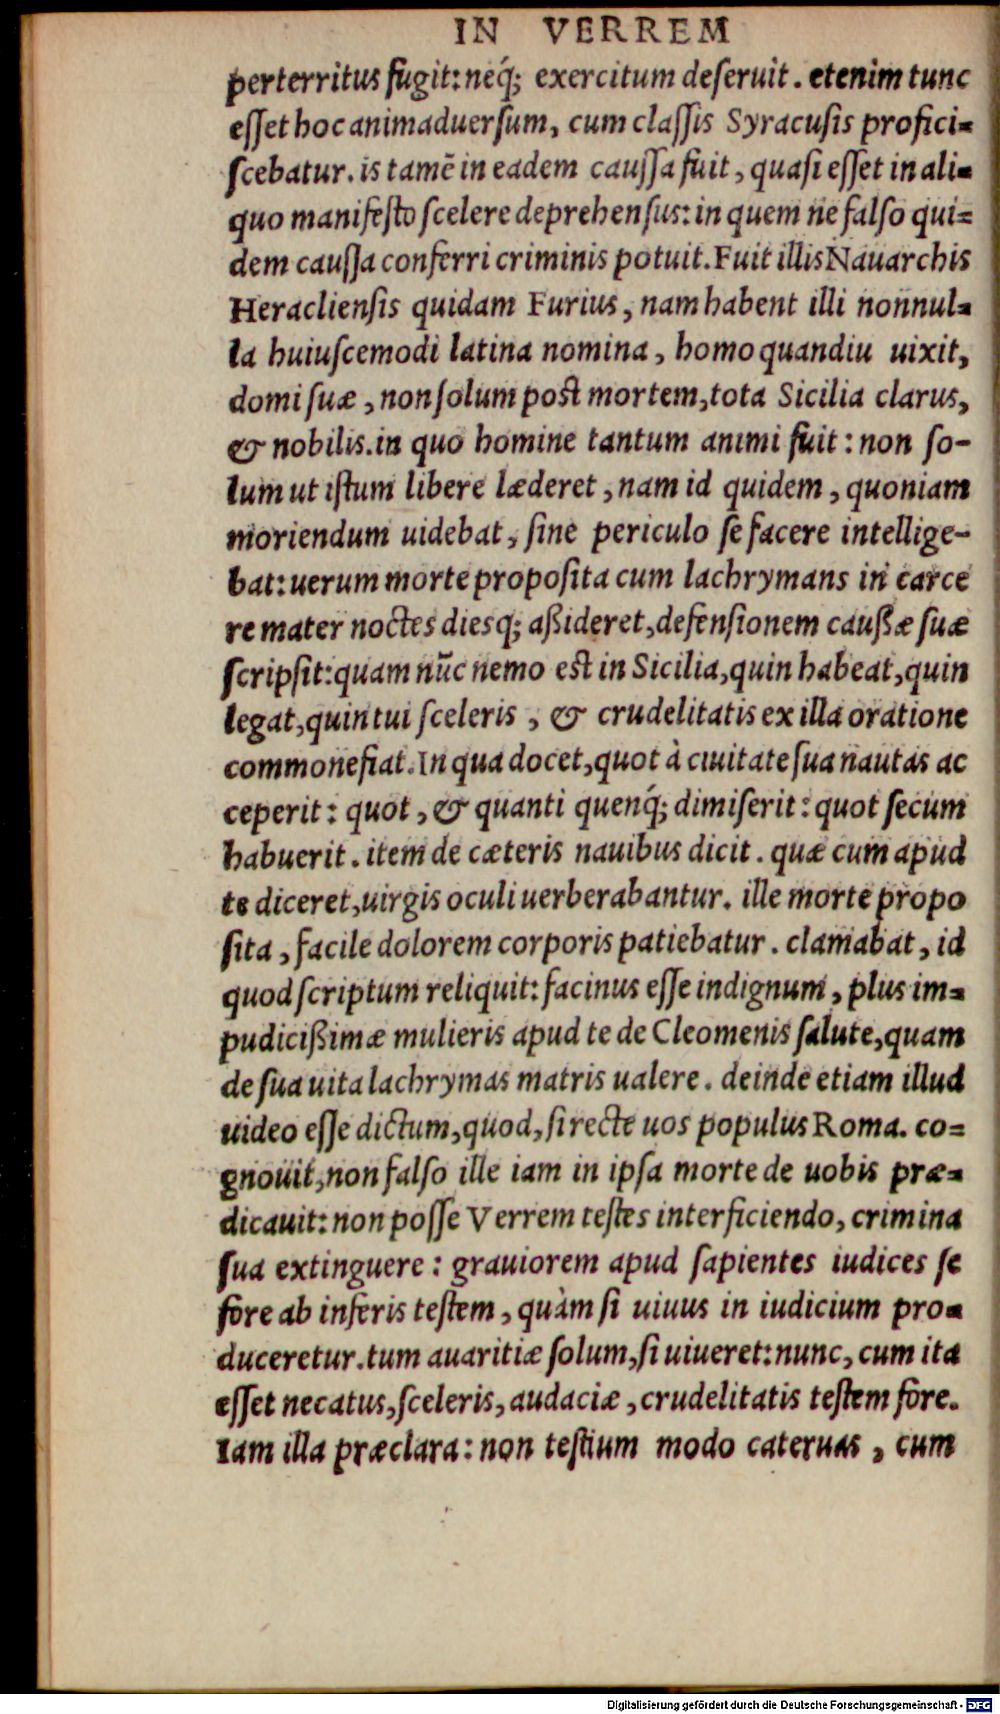 IN VERREM
perterritus fugit: neq́; exercitum deseruit. etenim tunc
esset hoc animaduersum, cum classis Syracusis profici-
scebatur. is tamē in eadem caussa fuit, quasi esset in ali-
quo manifesto scelere deprehensus: in quem ne falso qui-
dem caussa conferri criminis potuit. Fuit illis Nauarchis
Heracliensis quidam Furius, nam habent illi nonnul-
la huiuscemodi latina nomina, homo quandiu uixit,
domi suæ, non solum post mortem, tota Sicilia clarus,
& nobilis. in quo homine tantum animi fuit: non so-
lum ut istum libere læderet, nam id quidem, quoniam
moriendum uidebat, sine periculo se facere intellige-
bat: uerum morte proposita cum lachrymans in carce
re mater noctes diesq; aßideret, defensionem caußæ suæ
scripsit: quam nūc nemo est in Sicilia, quin habeat, quin
legat, quin tui sceleris, & crudelitatis ex illa oratione
commonefiat. In qua docet, quot à ciuitate sua nautas ac
ceperit: quot, & quanti quenq́; dimiserit: quot secum
habuerit. item de cæteris nauibus dicit. quæ cum apud
te diceret, uirgis oculi uerberabantur. ille morte propo
sita, facile dolorem corporis patiebatur. clamabat, id
quod scriptum reliquit: facinus esse indignum, plus im-
pudicißimæ mulieris apud te de Cleomenis salute, quam
de sua uita lachrymas matris ualere. deinde etiam illud
uideo esse dictum, quod, si recte uos populus Roma. co-
gnouit, non falso ille iam in ipsa morte de uobis præ-
dicauit: non posse Verrem testes interficiendo, crimina
sua extinguere: grauiorem apud sapientes iudices se
fore ab inferis testem, quàm si uiuus in iudicium pro-
duceretur. tum auaritiæ solum, si uiueret: nunc, cum ita
esset necatus, sceleris, audaciæ, crudelitatis testem fore.
Iam illa præclara: non testium modo cateruas, cum
Digitalisierung gefördert durch die Deutsche Forschungsgemeinschaft - DFG